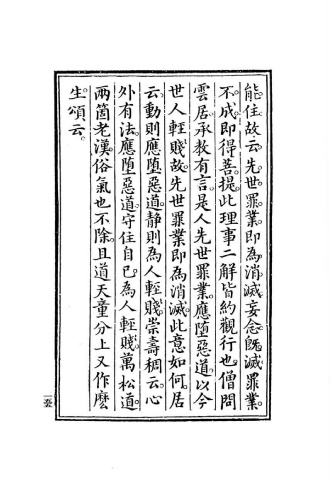 能住故云先世罪業即為消滅妄念旣滅罪業
不成即得菩提此理事二解皆約觀行也僧問
雲居承教有言是人先世罪業應堕惡道以今
世人輕賤故先世罪業即為消滅此意如何居
云動則應堕惡道静則為人輕賤崇壽稠云心
外有法應堕惡道守住自己為人輕賤萬松道
兩箇老漢俗氣也不除且道天童分上又作麽
生頌云